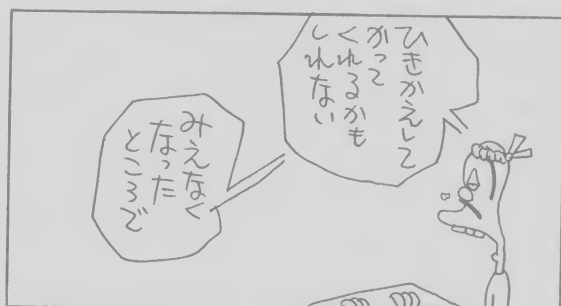 ひきかえして
かって
くれるかも
しれない
みえなく
なった
ところで